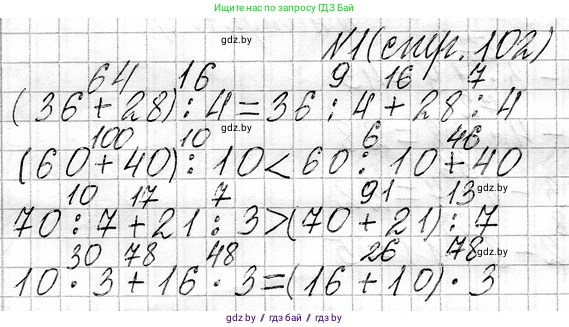 Ищите нас по запросу ГДЗ Бай
gdz.by
№1 (стр. 102)
64 16 9 16 7
(36 + 28) : 4 = 36 : 4 + 28 : 4
gdz.by
100 10 6 46
(60 + 40) : 10 < 60 : 10 + 40
10 17 7 91 13
gdz.by
70 : 7 + 21 : 3 > (70 + 21) : 7
30 78 48 26 78
gdz.by
10 · 3 + 16 · 3 = (16 + 10) · 3
gdz.by / гдз бай / gdz.by